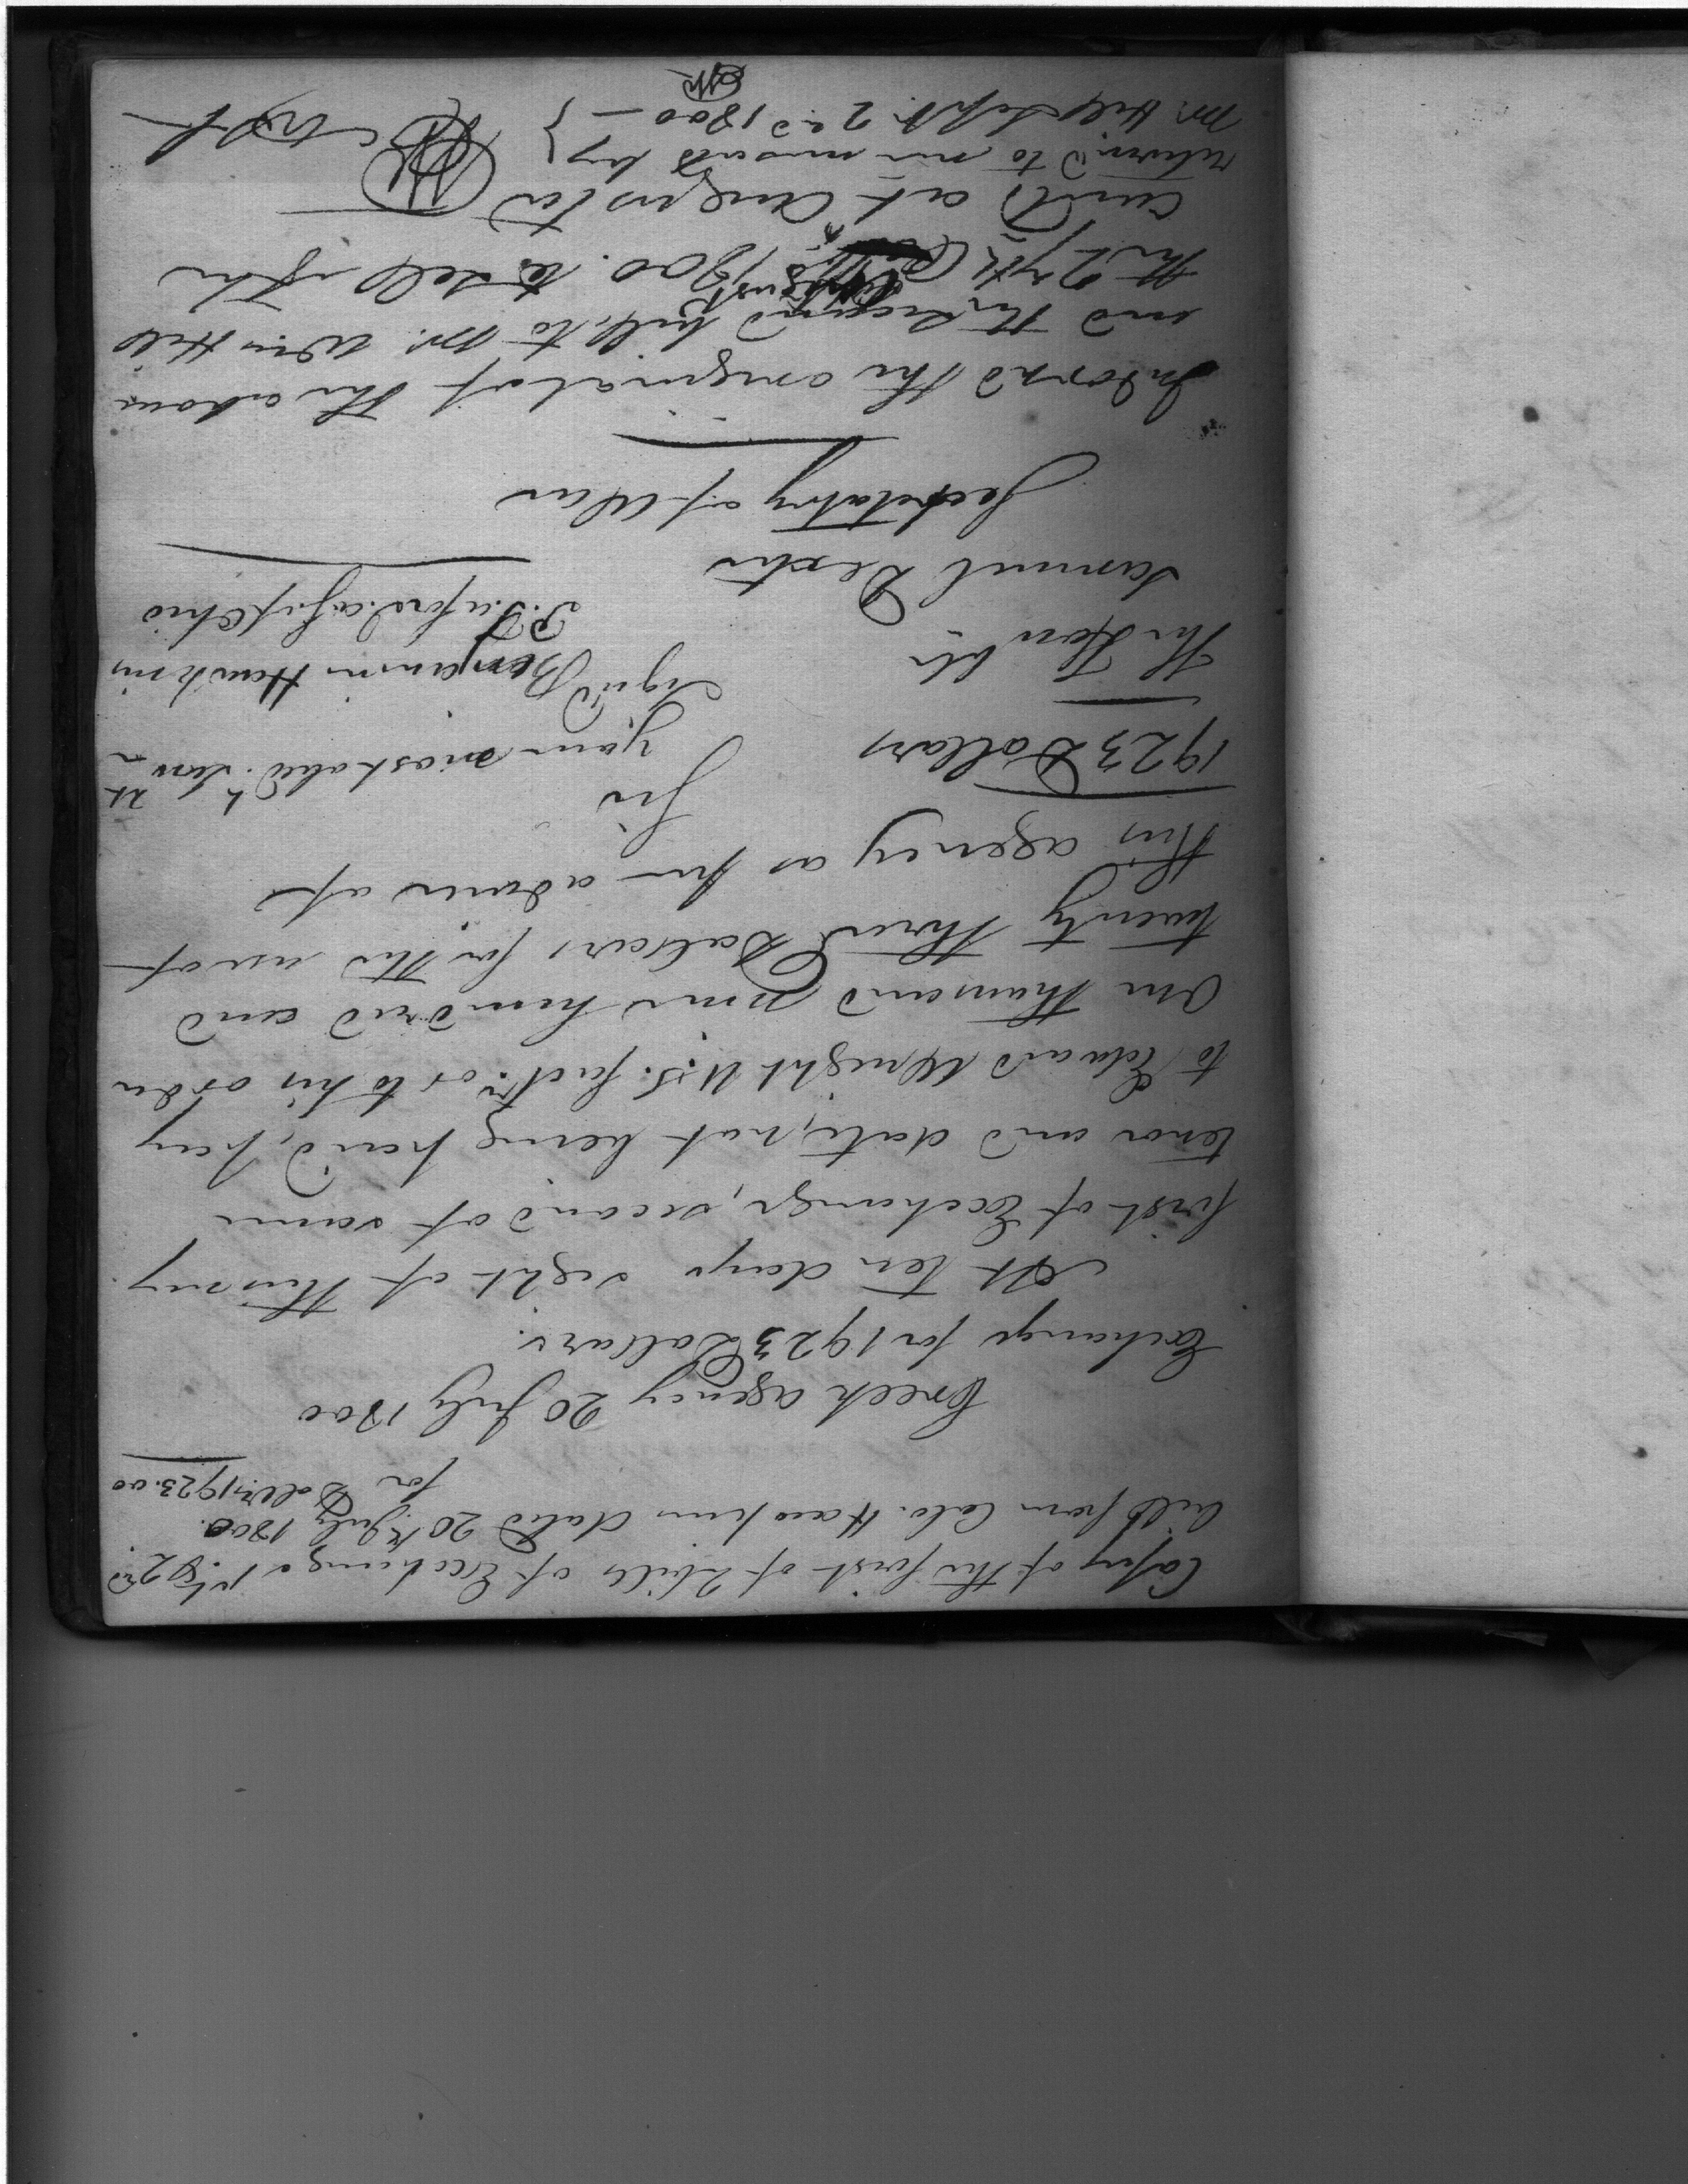 Copy of the first of 2 bills of Exchange 1st & 2nd
bill from Colo. Hawkins dated 20th July 1800.
for Dollrs. 1923.00
Creek agency 20 July 1800
Exchange for 1923 Dollars.
At ten days sight of this my
first of Exchange, second of same
tenor and date, not being paid, pay
to Edward Wright U.S. factr. or to his order
One thousand nine hundred and
twenty three Dollars for the use of
this agency as per advice of
Sir
1923 Dollars
your most obed. Servt
The Hon ble
Sign'd Benjamin Hawkins
Samuel Dexter
P. T. a for. aff. of Ohio
Secretary of War
Indorsd the original of the above
and the second bill, to Mr. Wm Hill
the 27th August 1800. to sell if he
could at Augusta
returnd to me unsold by }
Mr. Hill Sept. 2nd 1800 —